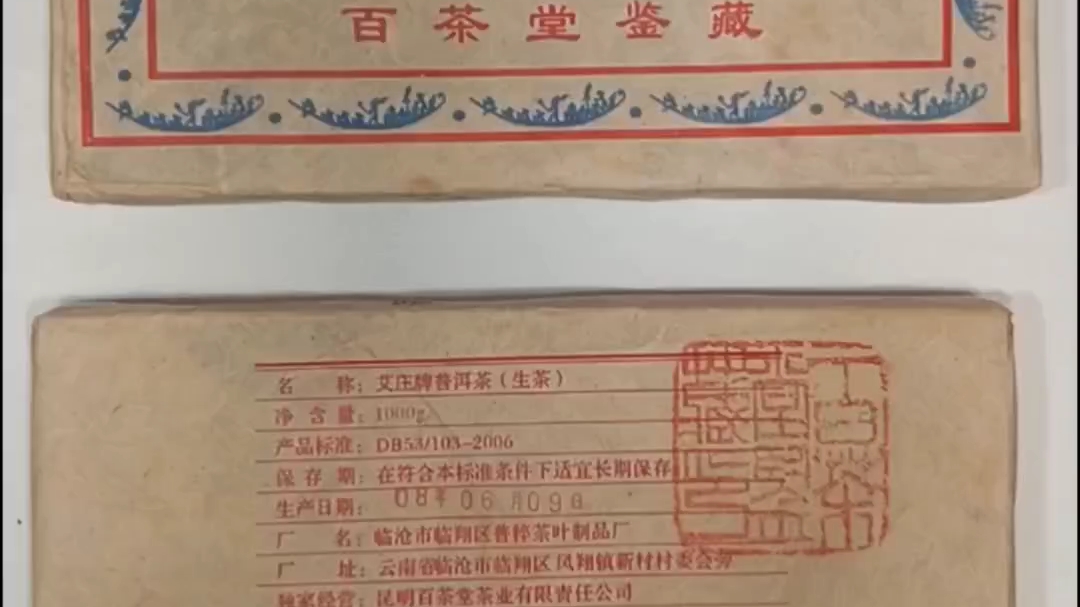 百茶堂鉴藏
名 称：艾庄牌普洱茶（生茶）
净 含 量：1000g
产品标准：DB53/103-2006
保 存 期：在符合本标准条件下适宜长期保存
生产日期：08年06月09日
厂 名：临沧市临翔区普粹茶叶制品厂
厂 址：云南省临沧市临翔区凤翔镇新村村委会旁
独家经营：昆明百茶堂茶业有限责任公司